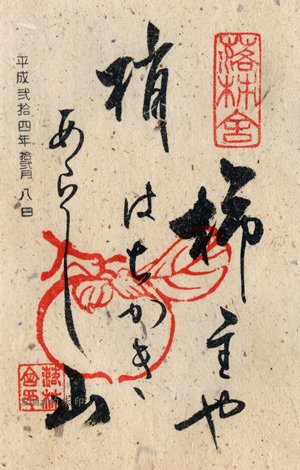 落柿舎
柿主や
梢はちかき
あらし山
平成弐拾四年拾弐月八日